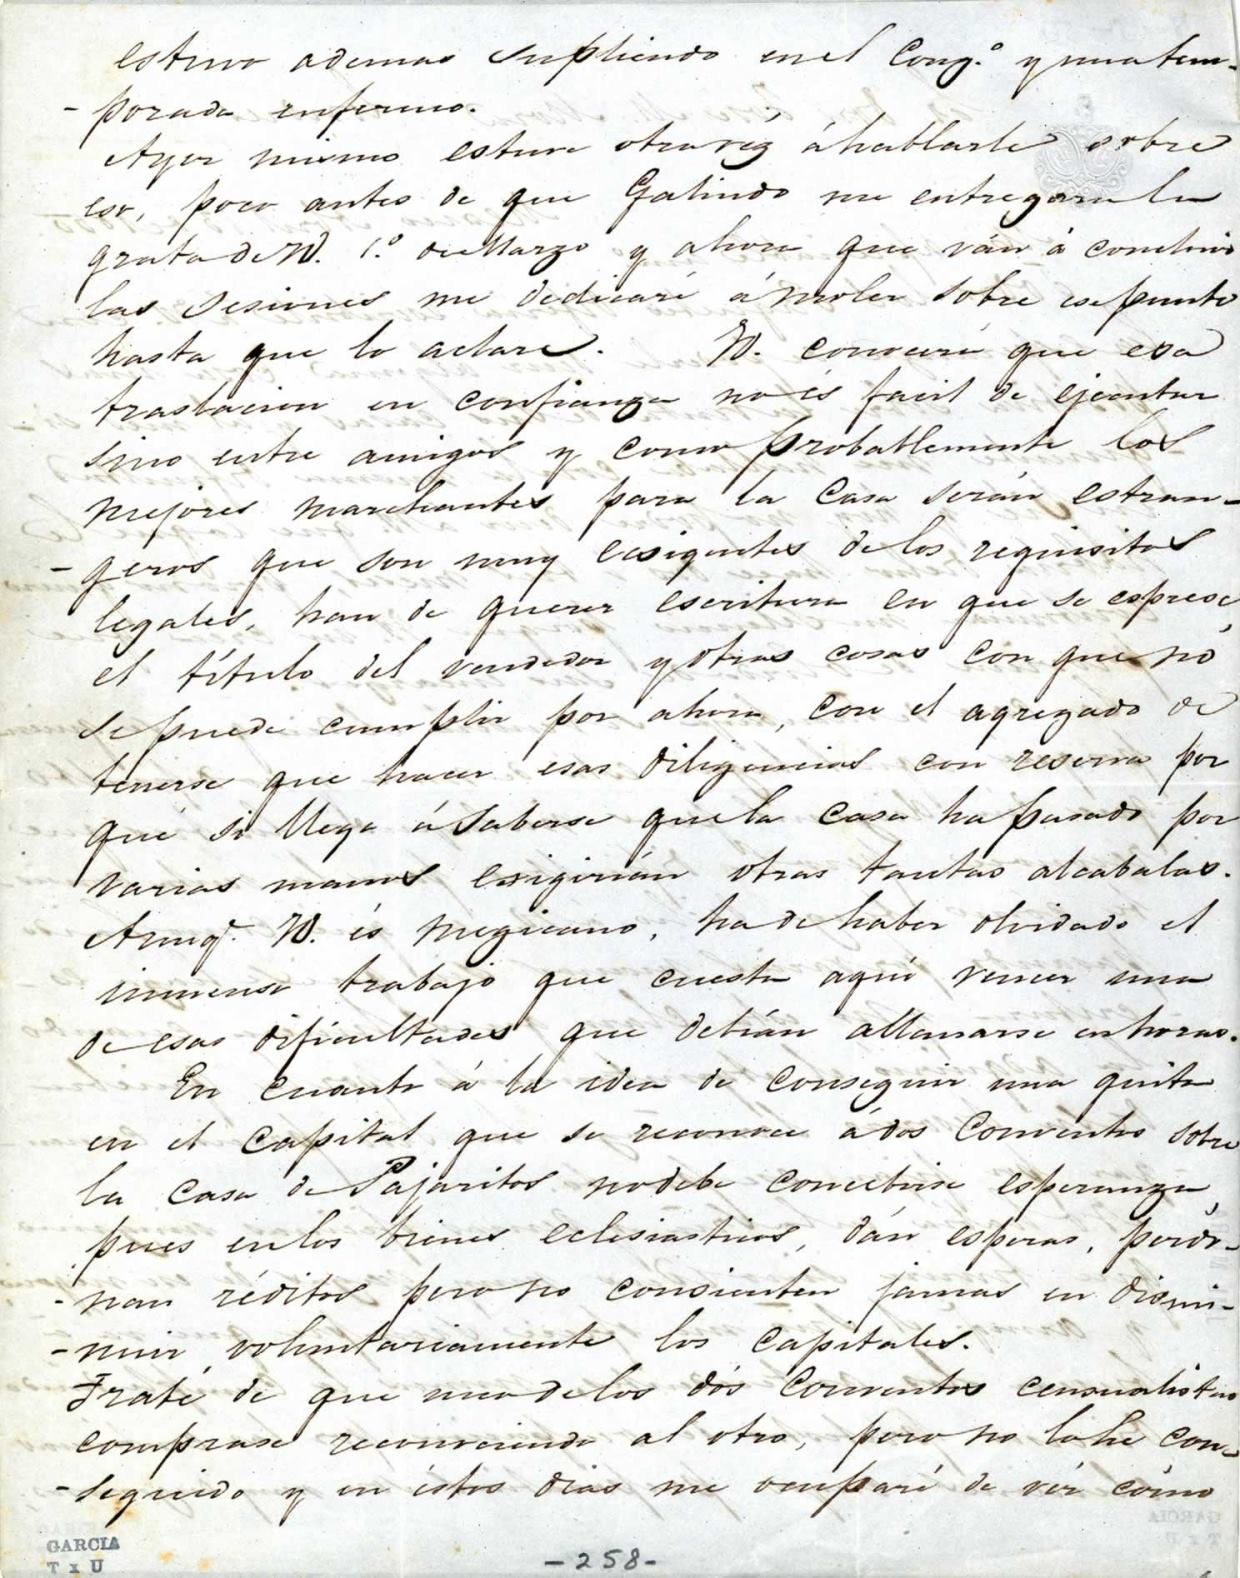 estuvo ademas supliendo en el Cong.º y una tem-
- porada enfermo.
Ayer mismo estuve otra véz á hablarle sobre
eso, poco antes de que Galindo me entregara la
grata de V. 1.º de Marzo y ahora que ván á concluir
las sesiones me dedicaré á moler sobre ese punto
hasta que lo aclare. V. conocerá que esa
traslacion en confianza no és facil de ejecutar
sino entre amigos y como probablemente los
mejores marchantes para la casa serán estran-
- geros que son muy ecsigentes de los requisitos
legales, han de querer escritura en que se esprese
el título del vendedor y otras cosas con que nó
se puede cumplir por ahora, con el agregado de
tenerse que hacer esas diligencias con reserva por
que si llega á saberse que la casa ha pasado por
varias manos exigirián otras tantas alcabalas.
Aunq.e V. és megicano, ha de haber olvidado el
inmenso trabajo que cuesta aquí vencer una
de esas dificultades que debián allanarse en horas.
En cuanto á la idea de conseguir una quita
en el capital que se reconoce á dos Conventos sobre
la casa de Pajaritos no debe concebirse esperanza,
pues en los bienes eclesiasticos, dán esperas, perdo-
- nan réditos pero no consienten jamas en dismi-
- nuir voluntariamente los capitales.
Traté de que uno de los dós Conventos censualistas
comprase reconociendo al otro, pero no lo he con-
- seguido y en éstos dias me ocuparé de vér cómo
GARCIA
T x U
- 258 -